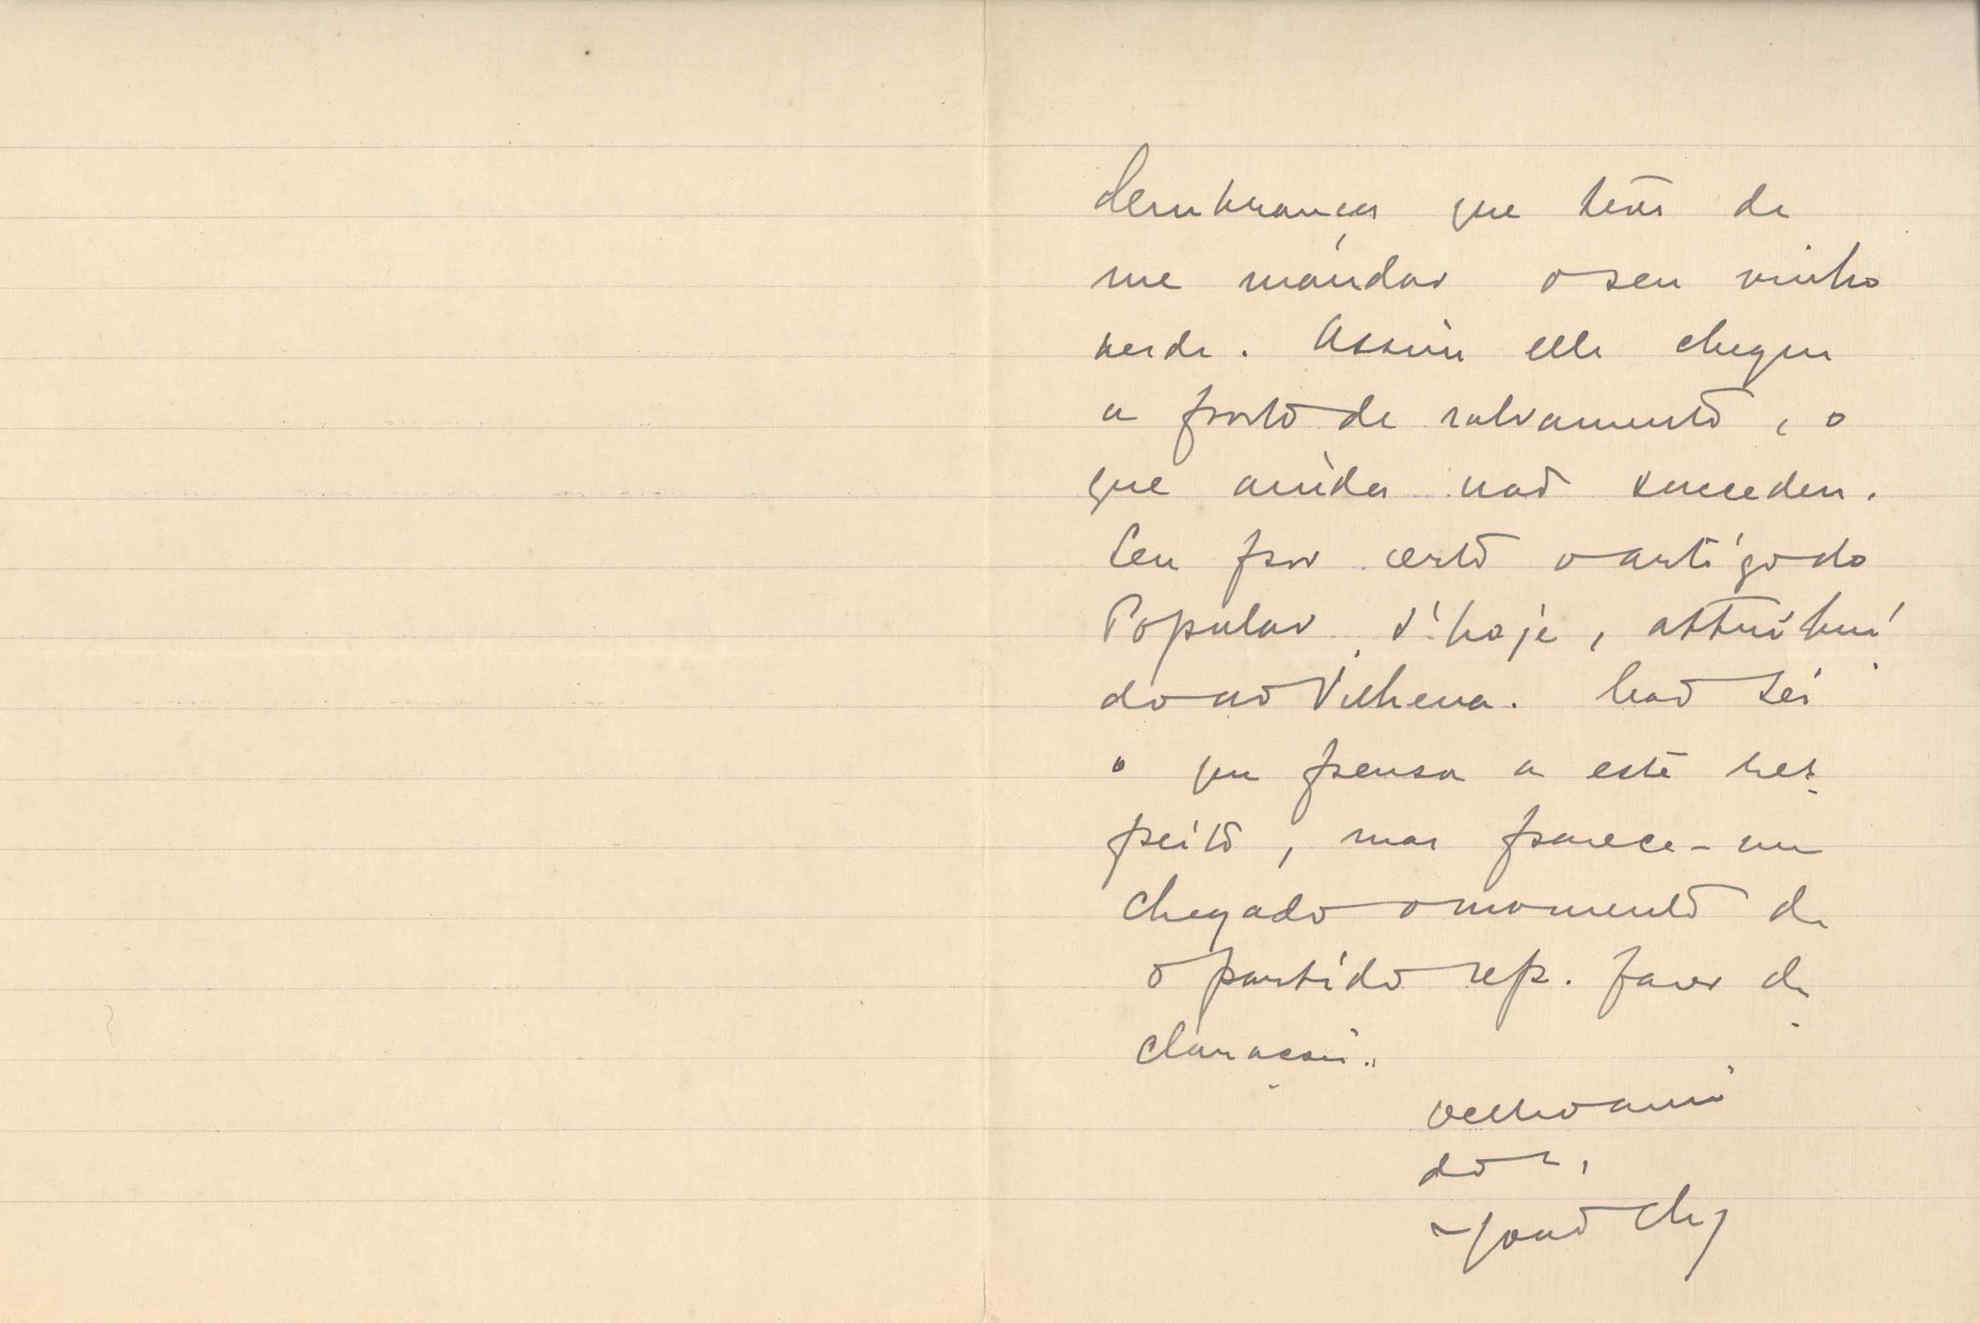 lembrança que teve de
me mandar o seu vinho
verde. Assim elle chegue
a porto de salvamento, o
que ainda não succedeu.
Leu por certo o artigo do
Popular d'hoje, attribui
do ao Vilhena. Não sei
o que pensa a este res-
peito, mas parece-me
chegado o momento de
o partido rep. fazer de-
clarações.
Velho ami
do c.,
João Chg